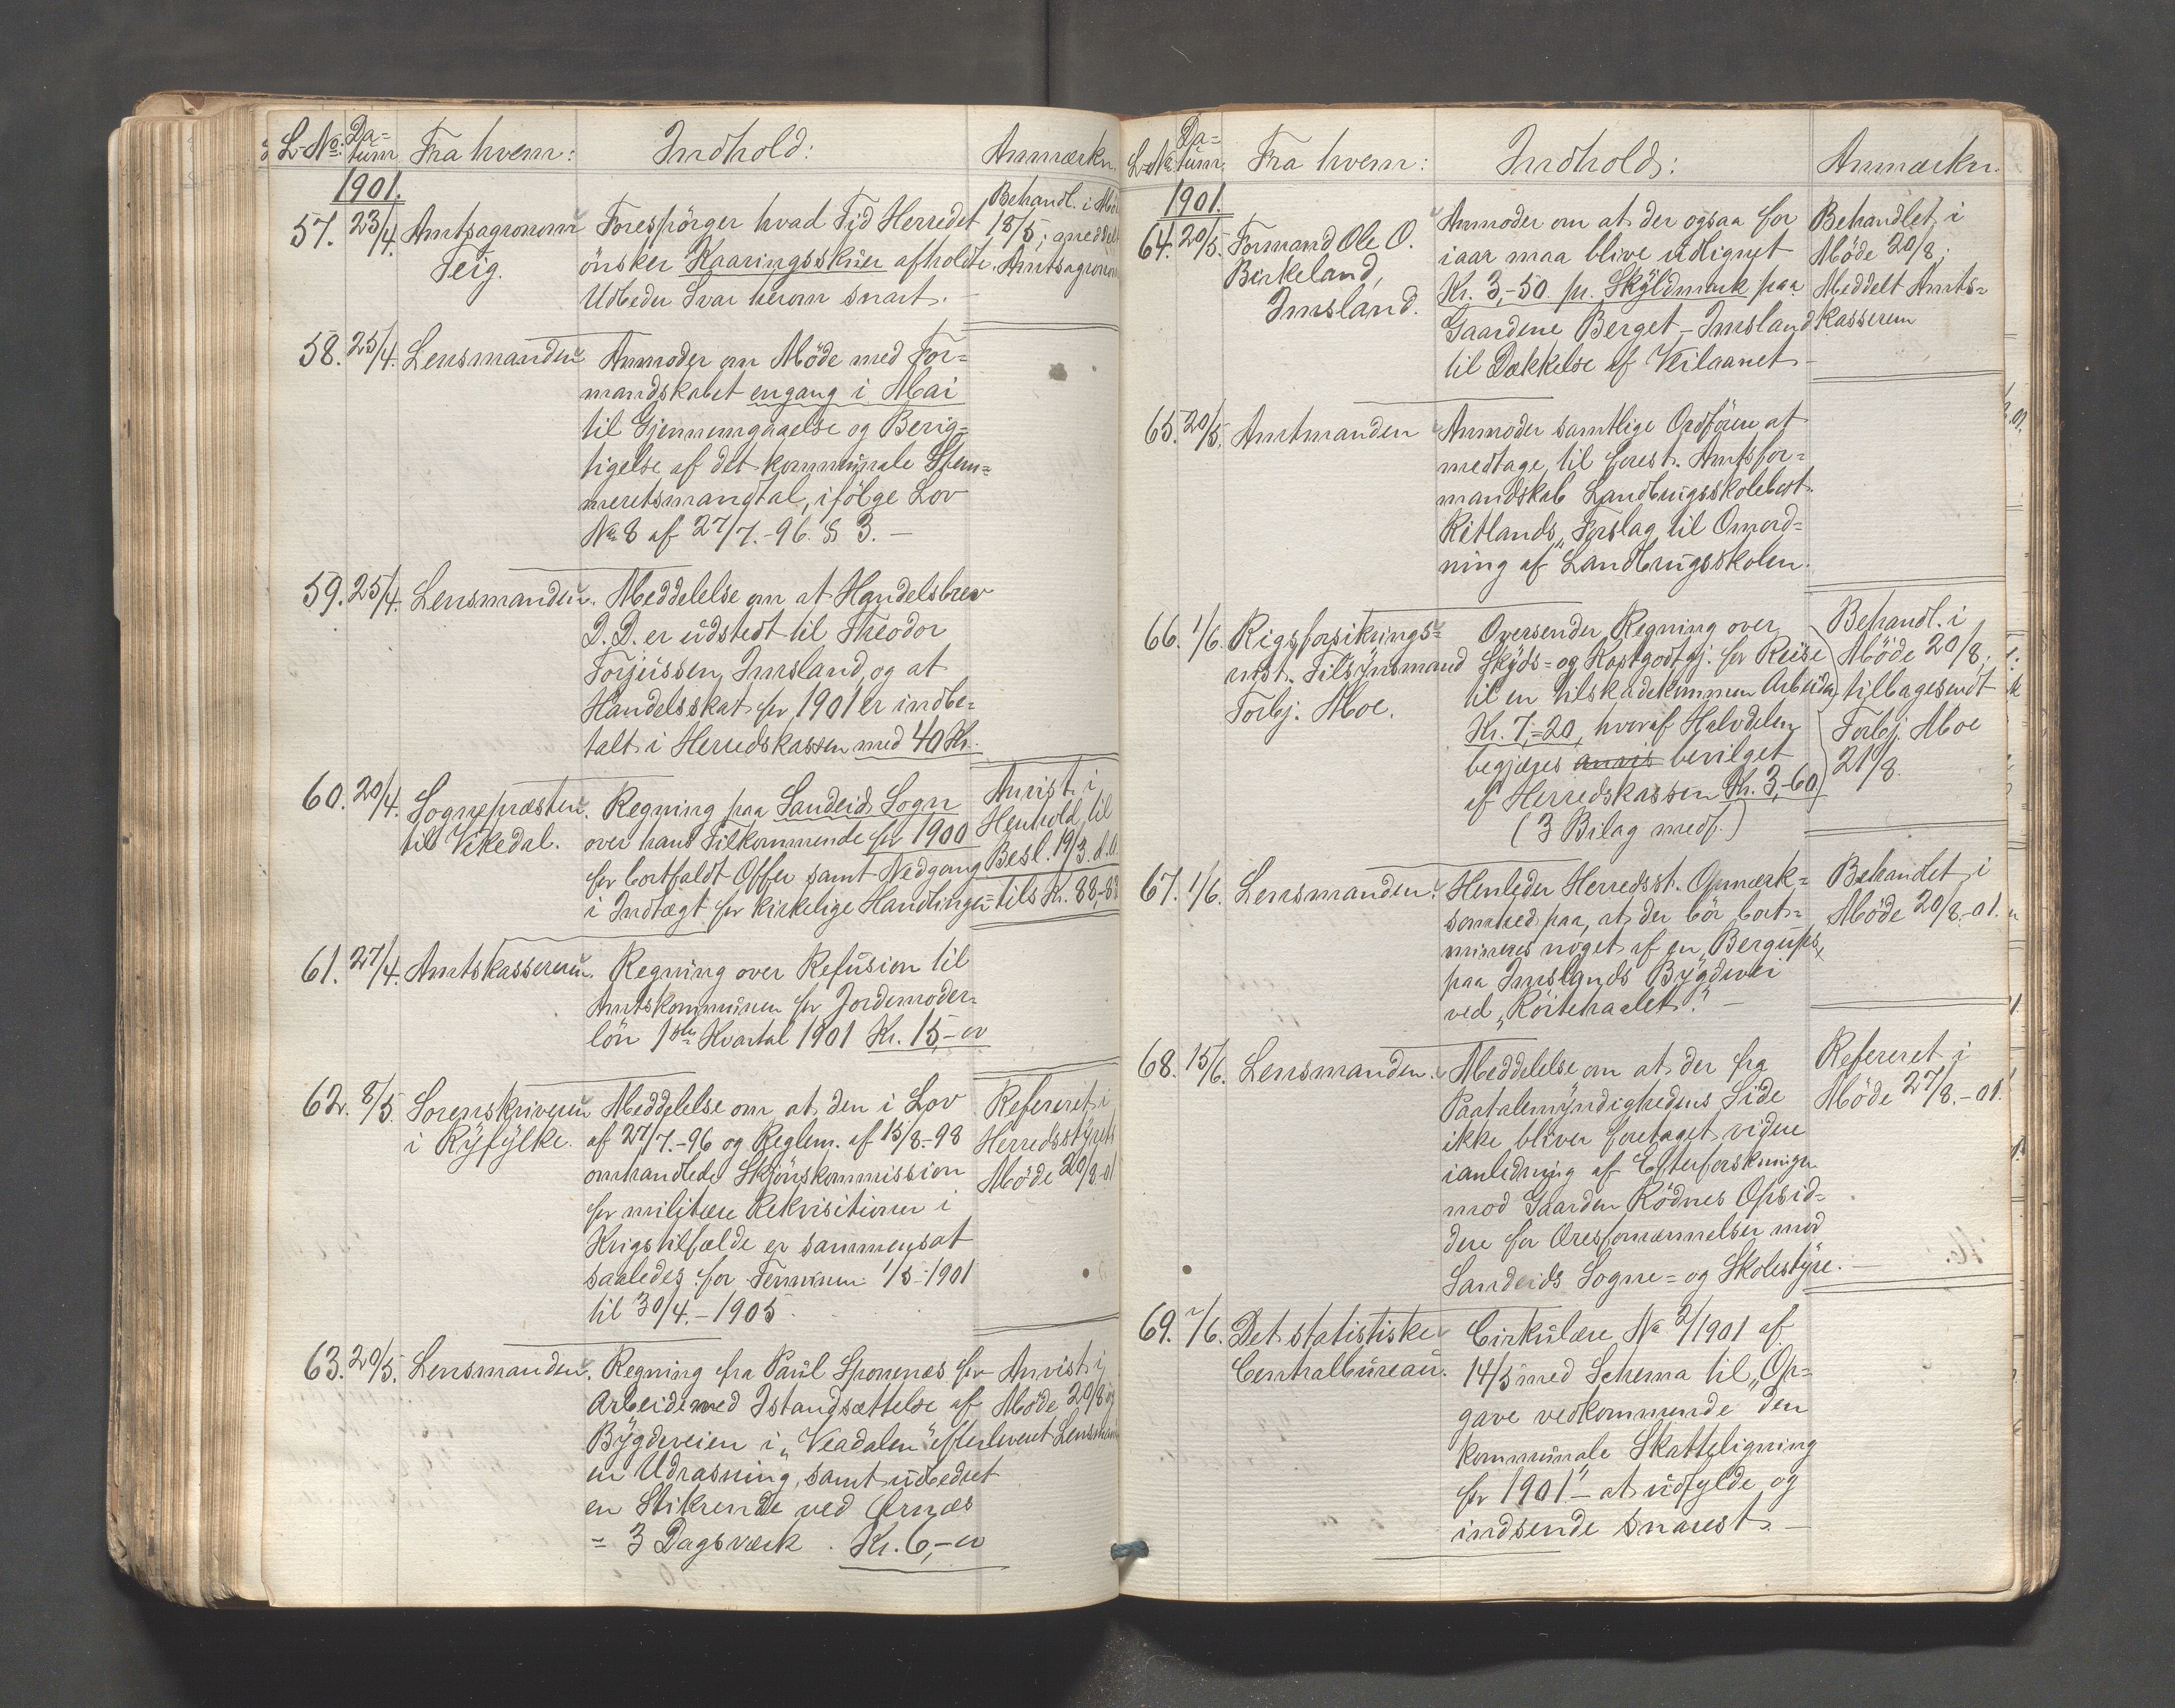 L-No: Da=tum Fra hvem: Indhold: Anmærkn.
1901.
57. 23/4. Amtsagronom
Feig.
Forespörger hvad Tid Herredet
önsker Kaaringsskuer afholdte.
Udbeder Svar herom snart. -
Behandl. i Möde
18/5; meddelt
Amtsagronom
58. 25/4. Lensmanden
Anmoder om Möde med For=
mandskabet engang i Mai
til Gjennemgaaelse og Berig=
tigelse af det kommunale Stem=
meretsmandtal, ifölge Lov
No 8 af 27/7.-96. § 3. -
59. 25/4. Lensmanden.
Meddelelse om at Handelsbrev
D. D. er udstedt til Theodor
Torjeissen, Imsland, og at
Handelsskat for 1901 er indbe=
talt i Herredskassen med 40 Kr.
60. 20/4. Sognepræsten
til Vikedal.
Regning paa Sandeid Sogn
over hans Tilkommende for 1900
for bortfaldt Offer samt Nedgang
i Indtægt for kirkelige Handlinger=
Anvist i
Henhold til
Besl. 19/3. d.A.
tils Kr. 88,-83
61. 27/4. Amtskassereren.
Regning over Refusion til
Amtskommunen for Jordemoder=
lön 1ste Kvartal 1901 Kr. 15,-
62. 8/5. Sorenskriveren
i Ryfylke.
Meddelelse om at den i Lov
af 27/7.-96 og Reglem. af 15/8-98
omhandlede Skjönskommission
for militære Rekvisitioner i
Krigstilfælde er sammensat
saaledes for Terminen 1/5-1901
til 30/4.-1905.
Refereret i
Herredsstyrets
Möde 20/8.-01
63. 20/5. Lensmanden.
Regning fra Paul Sponenæs for
Arbeide med Istandsættelse af
Bygdeveien i "Veadalen" efter
en Udrasning, samt udbedret
en Stikrende ved Ørnæs
= 3 Dagsværk. Kr. 6,-
Anvist i
Möde 20/8 og
leveret Lensmanden
L-No Da=tum. Fra hvem: Indhold: Anmærkn.
1901.
64. 20/5. Formand Ole O.
Birkeland,
Imsland.
Anmoder om at der ogsaa for
iaar maa blive udlignet
Kr. 3,-50 pr. Skyldmark paa
Gaardene Berget - Imsland
til Dækkelse af Veilaanet -
Behandlet i
Möde 20/8;
Meddelt Amts=
kasseren
65. 20/5. Amtmanden
Anmoder samtlige Ordförere at
medtage til forest. Amtsfor=
mandskab Landbrugsskolebest.
Ritlands "Forslag til Omord=
ning af Landbrugsskolen.
66. 1/6. Rigsforsikrings=
anst. Tilsynsmand
Torbj. Moe.
Oversender Regning over
Skyds= og Kostgodtgj. for Reise
til en tilskadekommen Arbeider
Kr. 7,=20, hvoraf Halvdelen
begjæres anvis bevilget
af Herredskassen Kr. 3,-60
(3 Bilag medf.)
Behandl. i
Möde 20/8;
tilbagesendt
Torbj. Moe
21/8.
67. 1/6. Lensmanden.
Henleder Herredsst. Opmærk=
somhed paa, at der bör bort=
mineres noget af en "Bergufs"
paa Imslands Bygdevei
ved "Röitehaalet". -
Behandlet i
Möde 20/8.-01.
68. 15/6. Lensmanden.
Meddelelse om at der fra
Paatalemyndighedens Side
ikke bliver foretaget videre
ianledning af Efterforskningen
mod Gaarden Rödnes Opsid=
dere for Æresfornærmelser mod
Sandeids Sogne= og Skolestyre. -
Refereret i
Möde 27/8.-01.
69. /6. Det statistiske
Centralbureau.
Cirkulære No 2/1901 af
14/5 med Schema til "Op=
gave vedkommende den
kommunale Skatteligning
for 1901" - at udfylde og
indsende snarest. -